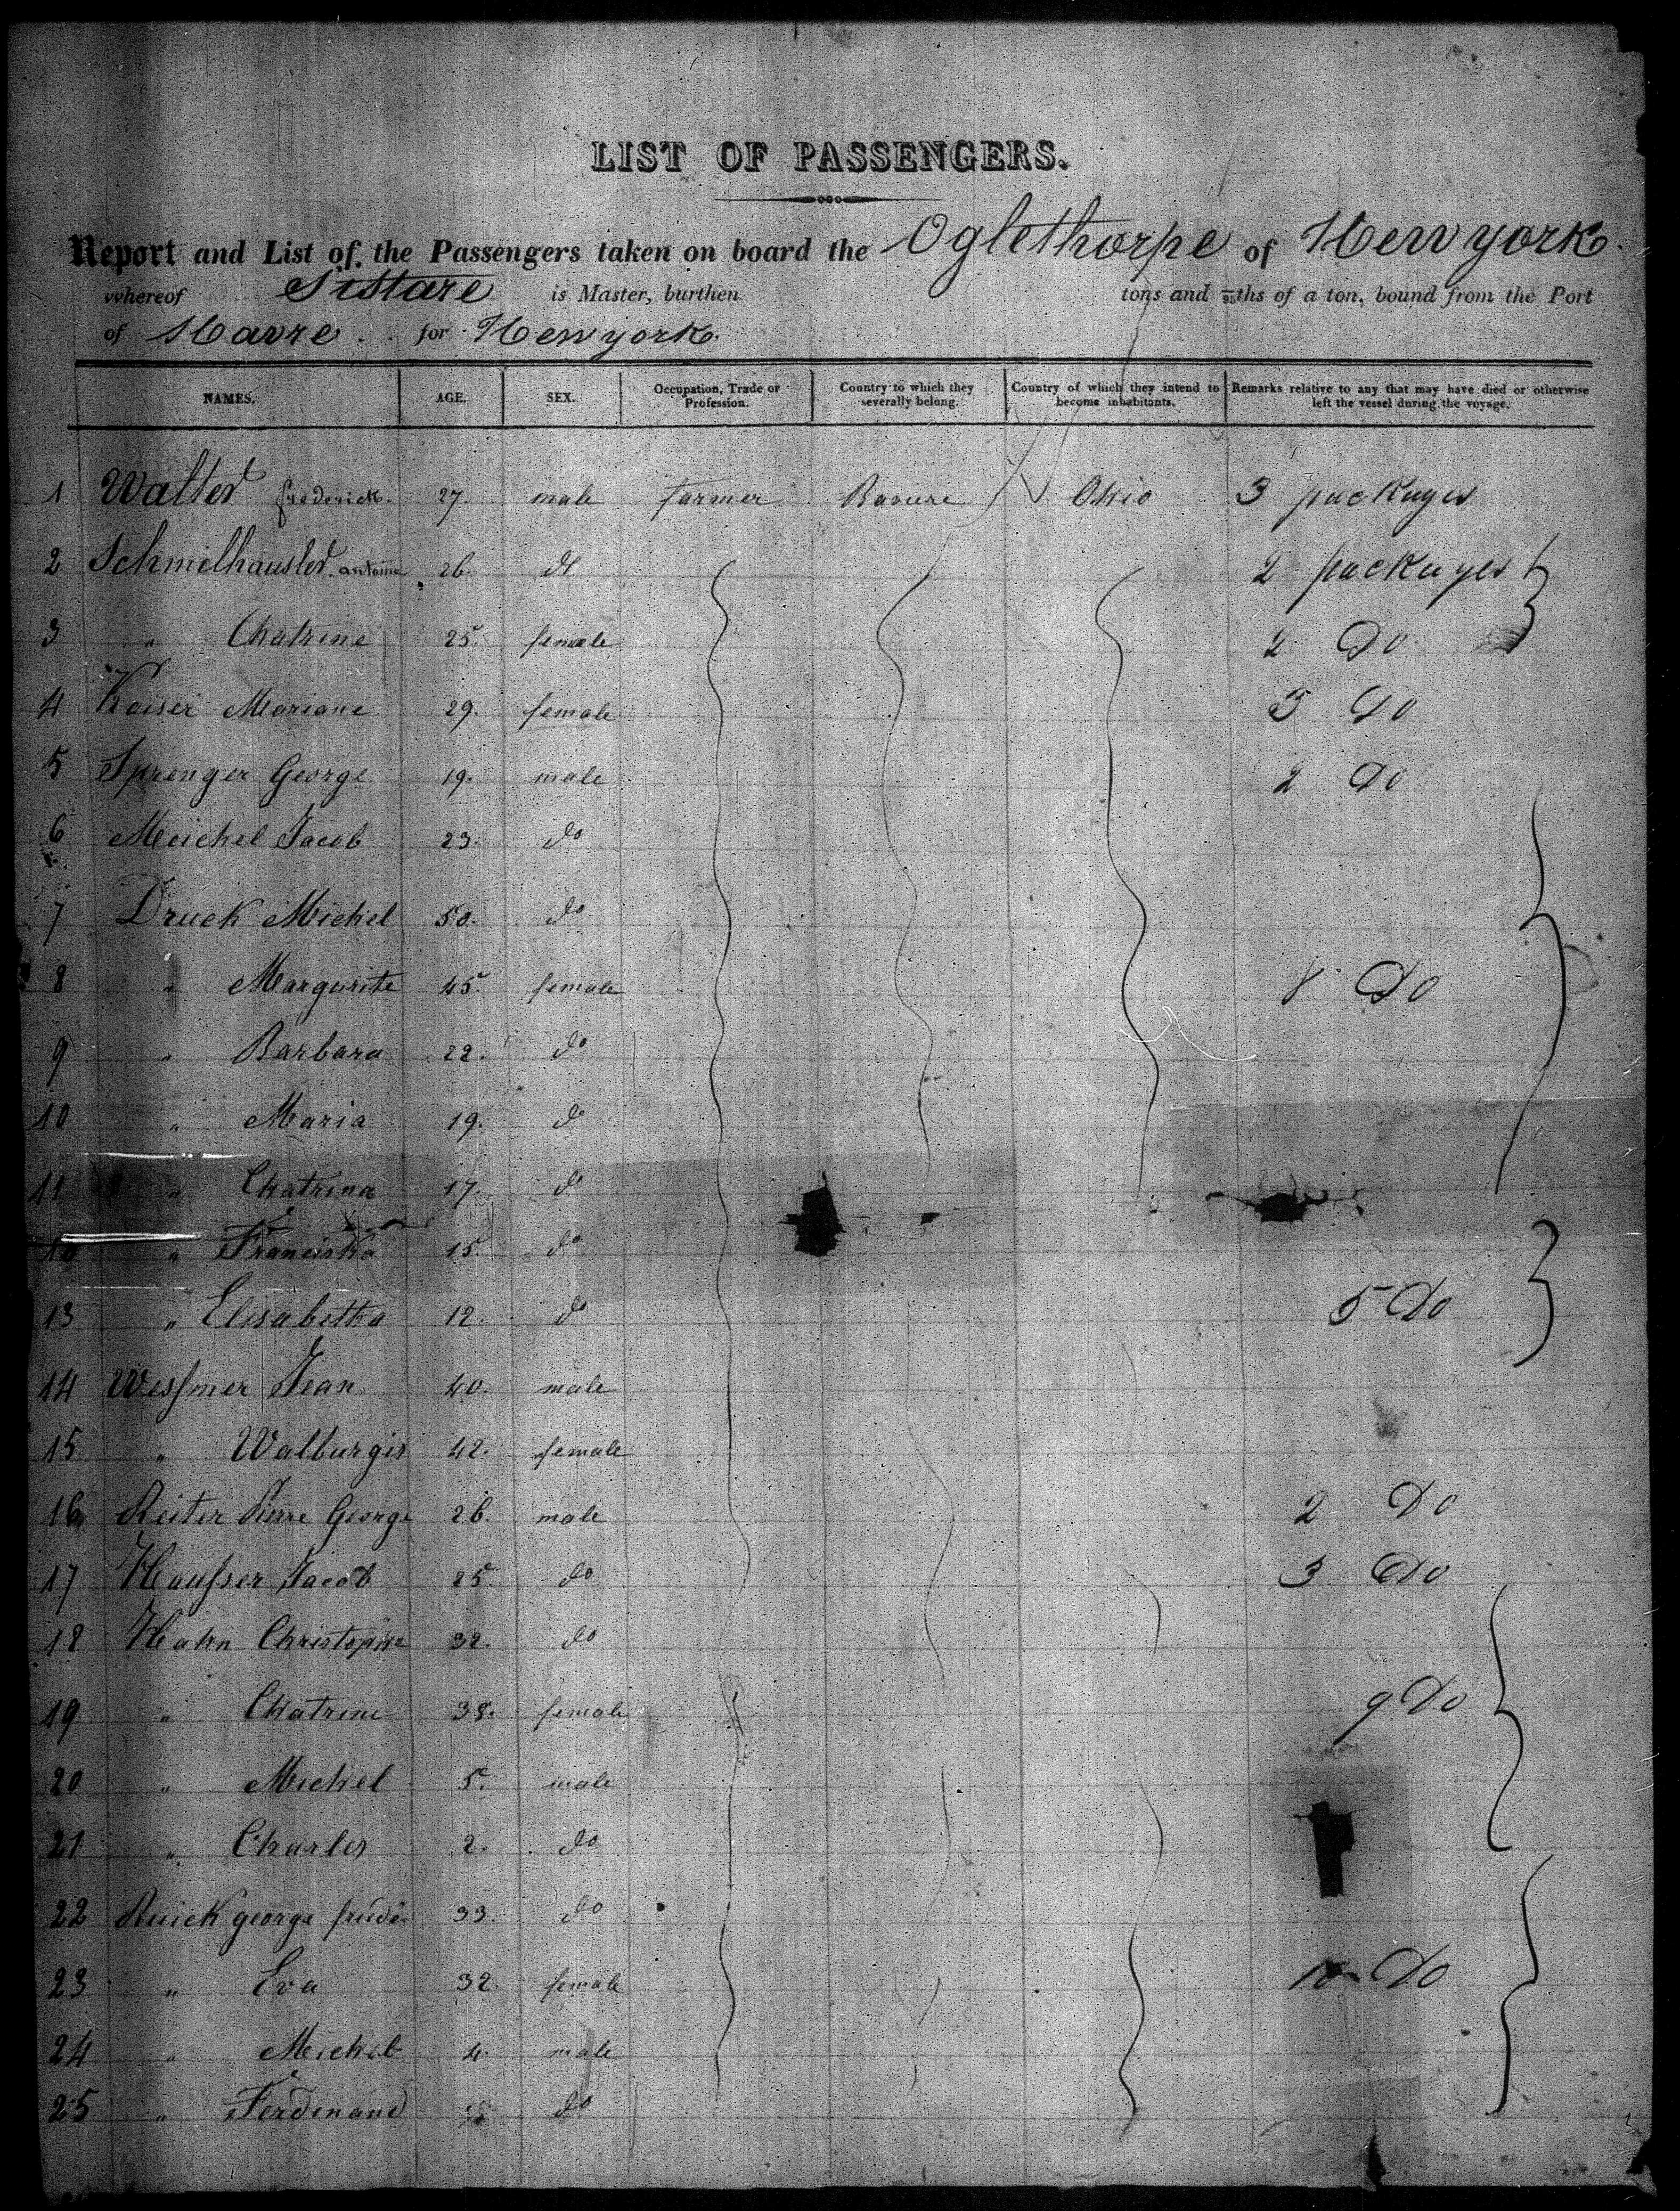 LIST OF PASSENGERS.
Report and List of the Passengers taken on board the Oglethorpe of New york
whereof Sistare is Master, burthen tons and 95ths of a ton, bound from the Port
of Havre for New york.
NAMES. AGE. SEX. Occupation, Trade or Profession. Country to which they severally belong. Country of which they intend to become inhabitants. Remarks relative to any that may have died or otherwise left the vessel during the voyage.
1 Walter frederick 27. male farmer Baviere Ohio 3 packages
2 antoine 26. do 2 packages
3 " Chatrine 25. female 2 Do
4 Kaiser Mariane 29. female 3 Do
5 Sprenger George 19. male 2 Do
6 Meichel Jacob 23. do
7 Druck Michel 50. do
8 " Margurite 45. female 8 Do
9 " Barbara 22. do
10 " Maria 19. do
11 " Chatrina 17. do
" Franciska 15. do
13 " Elisabetha 12. do 5 Do
14 Wessmer Jean 40. male
15 " Walburgis 42. female
16 Reiter Pierre George 26. male 2 Do
17 Hausser Jacob 25. do 3 Do
18 Hahn Christophe 32. do
19 " Chatrine 38. female 9 Do
20 " Michel 5. male
21 " Charles 2. do
22 george 33. do
23 " Eva 32. female Do
24 " Michel 4. male
25 " Ferdinand do